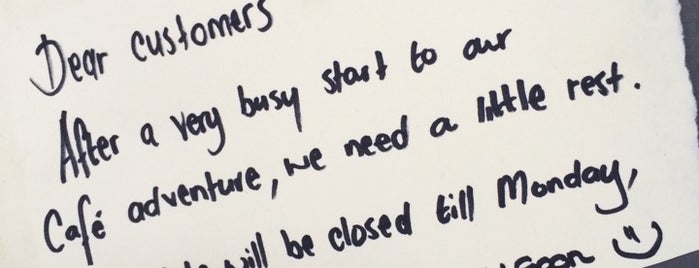 Dear customers
After a very busy start to our
Café adventure, we need a little rest.
will be closed till Monday,
soon